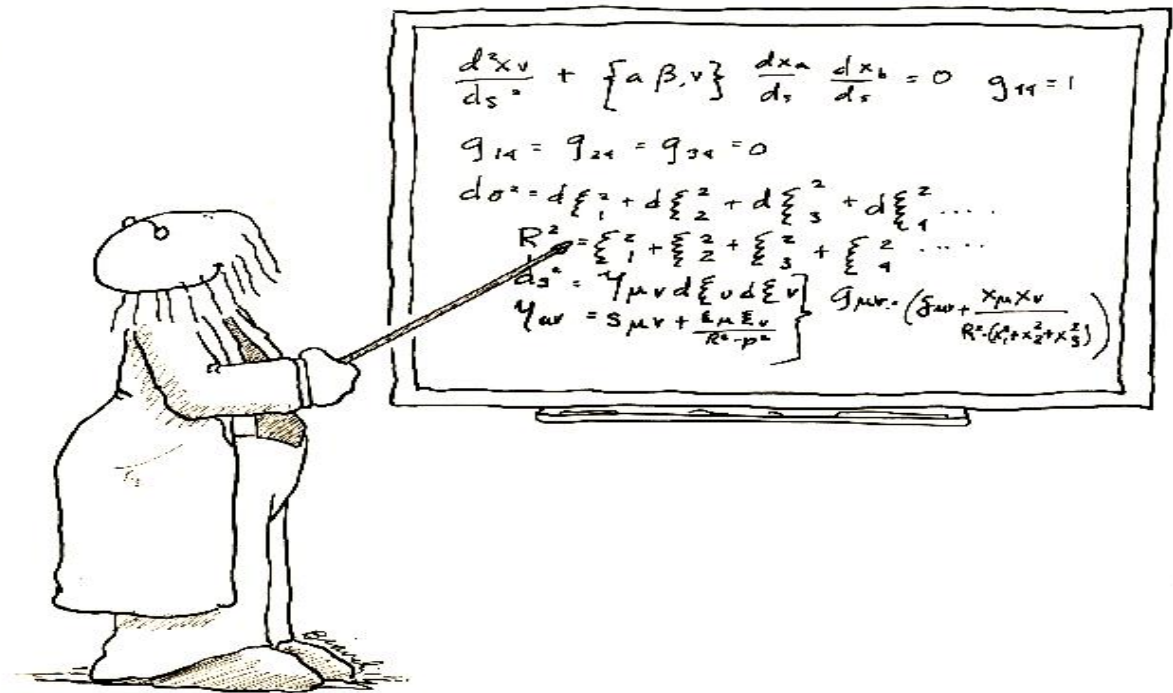 d²xν/ds² + {a β,ν} dxₐ/ds dx_b/ds = 0 g₄₄ = 1
g₁₄ = g₂₄ = g₃₄ = 0
dσ² = dξ₁² + dξ₂² + dξ₃² + dξ₄² ....
R² = ξ₁² + ξ₂² + ξ₃² + ξ₄² .....
ds² = γμν dξν dξν
γμν = Sμν + ξμ ξν/R²-p² } gμν = (δμν + xμ xν/R²-(x₁²+x₂²+x₃²))